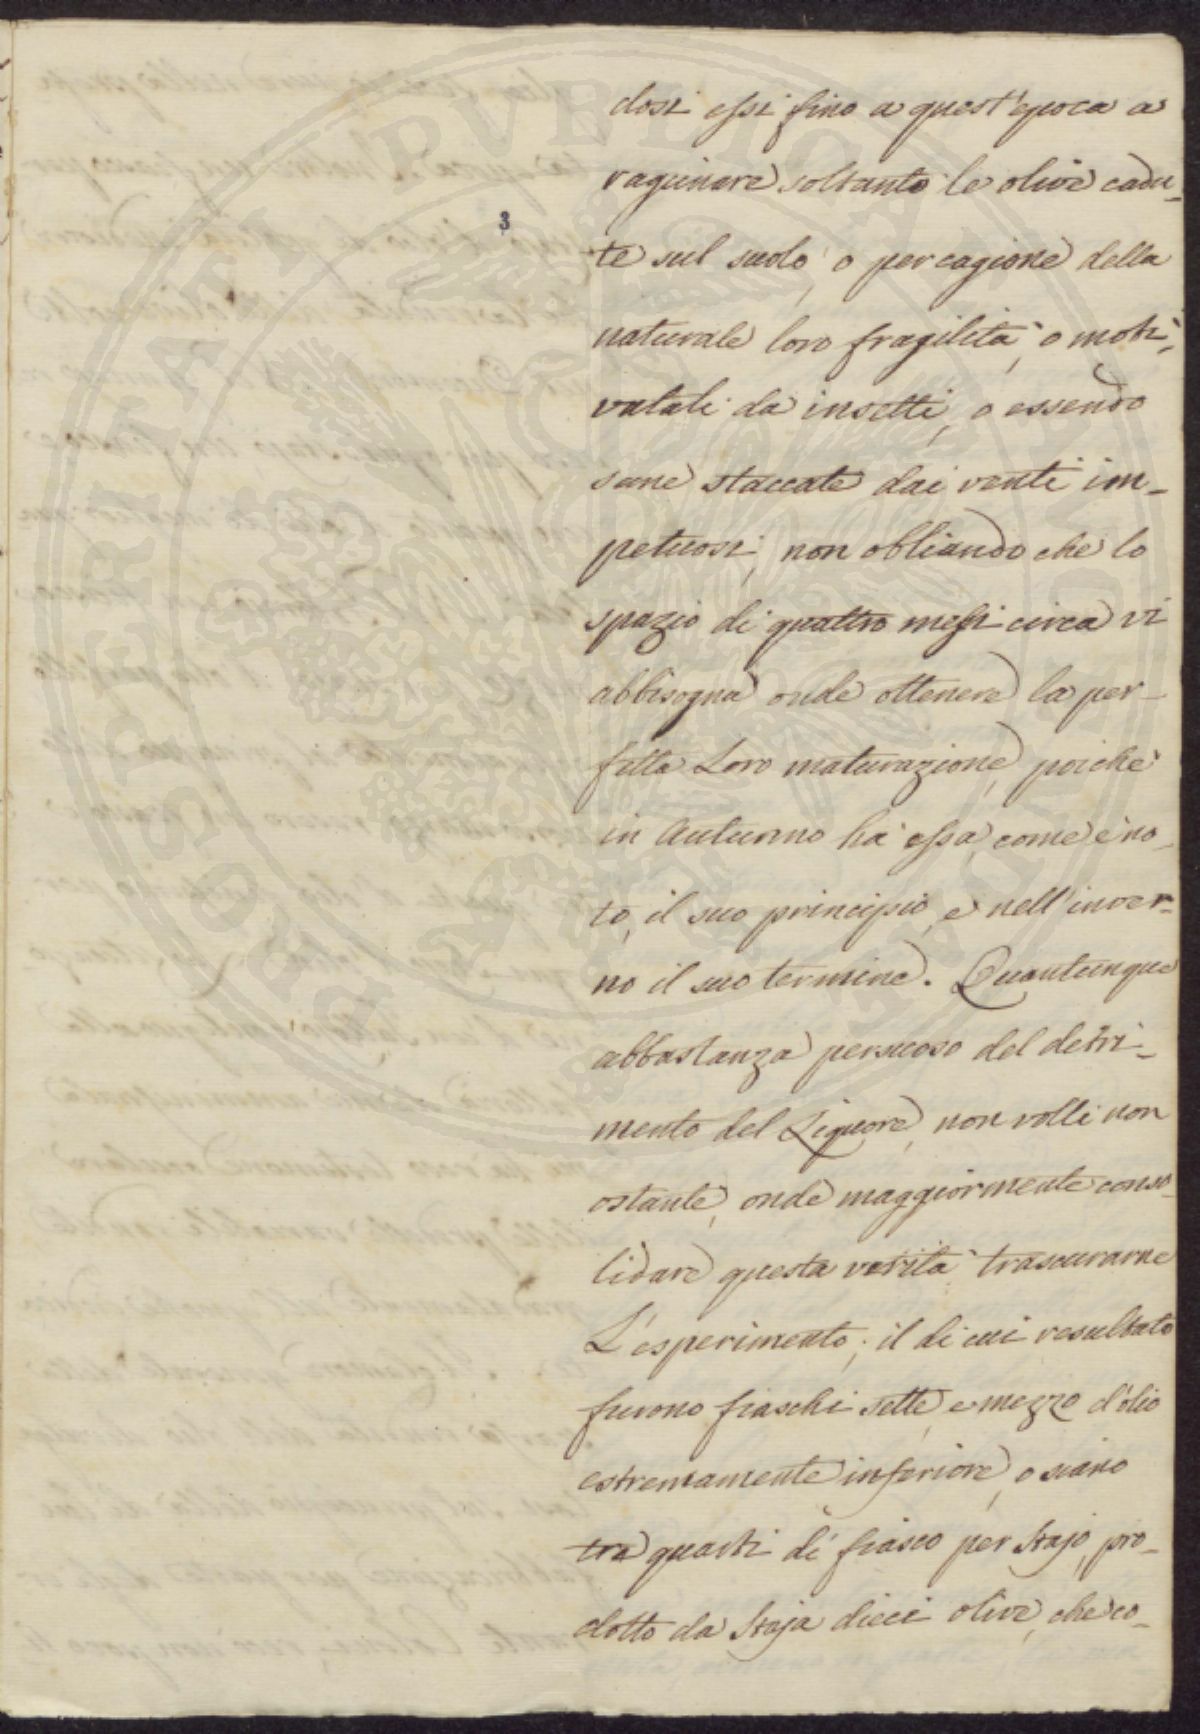 dosi essi fino a quest'epoca a
ragunare soltanto le olive cadu-
3
te sul suolo, o per cagione della
naturale loro fragilità, o moti-
vatali da insetti, o essendo
sene staccate dai venti im-
petuosi, non obliando che lo
spazio di quattro mesi circa vi
abbisogna onde ottenere la per-
fetta Loro maturazione, poichè
in Autunno ha essa, come è no-
to, il suo principio, e nell'inver-
no il suo termine. Quantunque
abbastanza persuaso del detri-
mento del Liquore, non volli non
ostante, onde maggiormente conso-
lidare questa verità trascurarne
L'esperimento; il di cui resultato
furono fiaschi sette, e mezzo d'olio
estremamente inferiore, o siano
tre quarti di fiasco per Stajo, pro-
dotto da Staja dieci olive, che co-